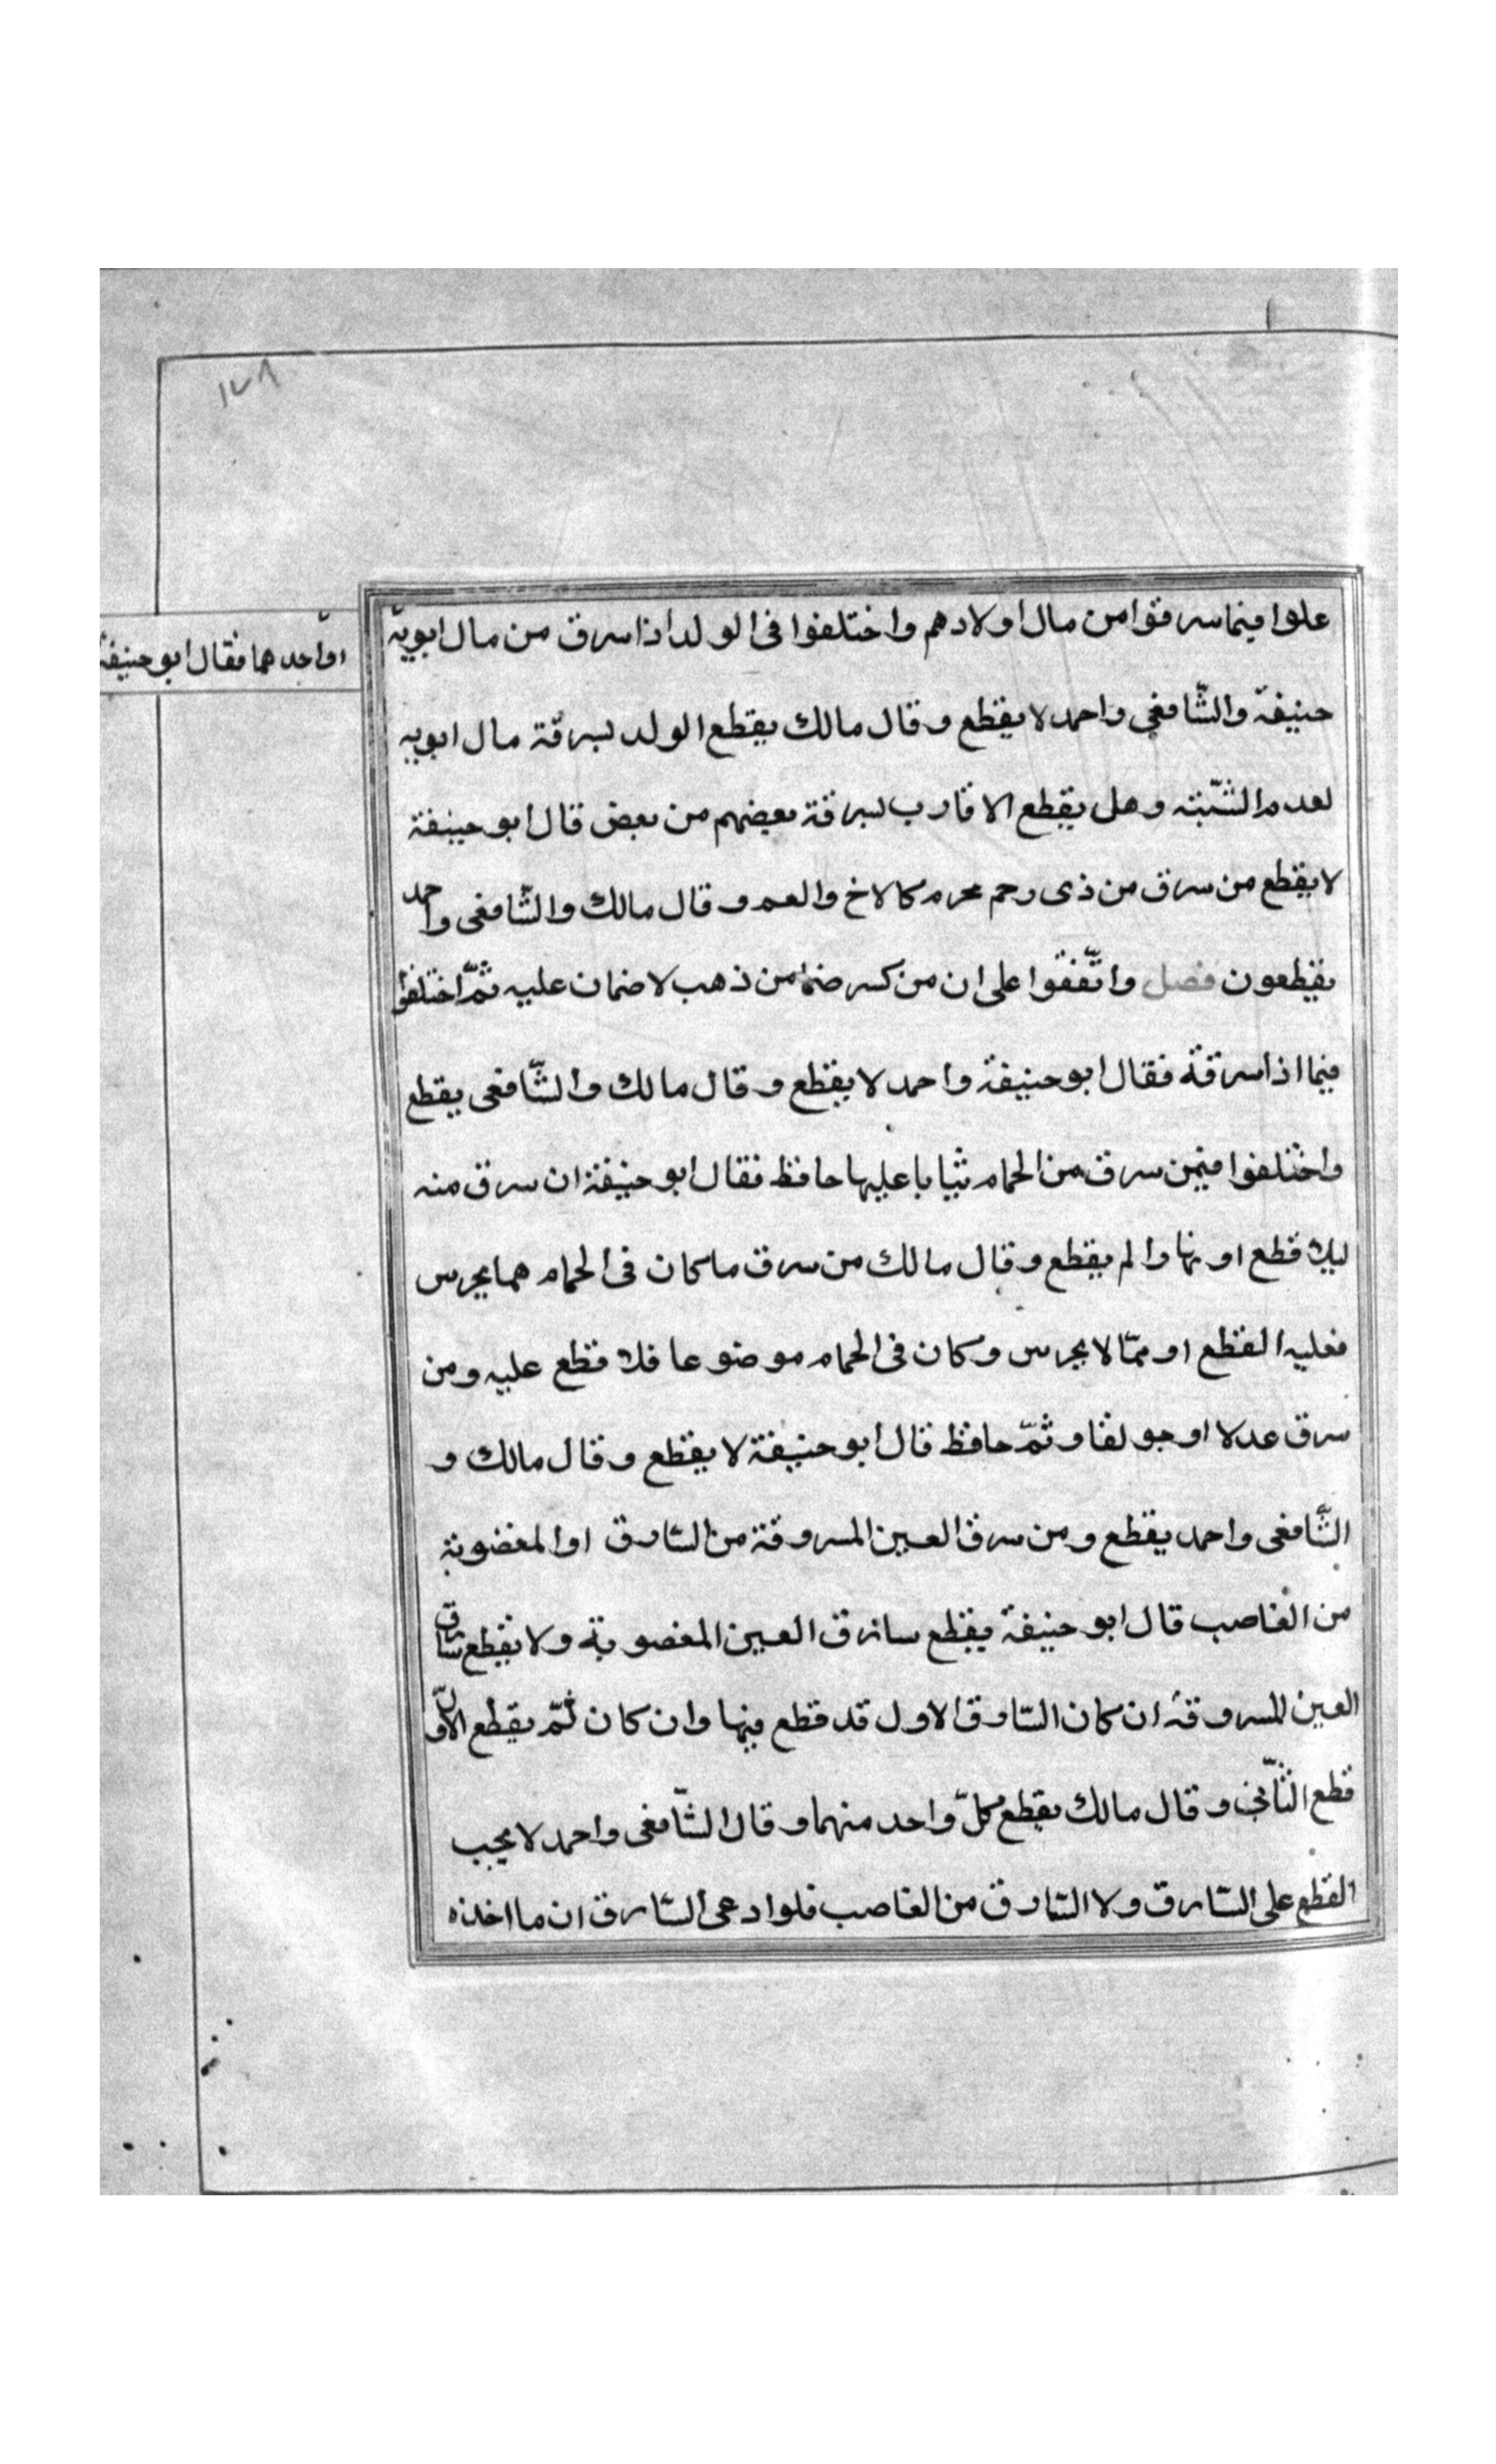 ١٧٨
علوا فيما سرقوا من مال اولادهم واختلفوا فى الولد اذا سرق من مال ابويه
او احدهما فقال ابو حنيفة
حنيفة والشّافعى واحمد لا يقطع وقال مالك يقطع الولد لسرقة مال ابويه
لعدم الشّبهة وهل يقطع الاقارب لسرقة بعضهم من بعض قال ابو حنيفة
لا يقطع من سرق من ذى رحم محرم كالاخ والعم وقال مالك والشّافعى واحمد
يقطعون فصل واتّفقوا على ان من كسر صنما من ذهب لا ضمان عليه ثمّ اختلفوا
فيما اذا سرقة فقال ابو حنيفة واحمد لا يقطع وقال مالك والشّافعى يقطع
واختلفوا فيمن سرق من الحمام ثيابا عليها حافظ فقال ابو حنيفة ان سرق منه
ليلا قطع او نهارا لم يقطع وقال مالك من سرق ما كان فى الحمام مما يحرس
فعليه القطع او ممّا لا يحرس وكان فى الحمام موضوعا فلا قطع عليه ومن
سرق عدلا او جولقا وثمّ حافظ قال ابو حنيفة لا يقطع وقال مالك و
الشّافعى واحمد يقطع ومن سرق العين المسروقة من السّارق او المغصوبة
من الغاصب قال ابو حنيفة يقطع سارق العين المغصوبة ولا يقطع سارق
العين المسروقة ان كان السّارق الاول قد قطع فيها وان كان لمّ يقطع الاوّل
قطع الثّانى وقال مالك يقطع كلّ واحد منهما وقال الشّافعى واحمد لا يجب
القطع على السّارق ولا السّارق من الغاصب فلو ادعى السّارق ان ما اخذه